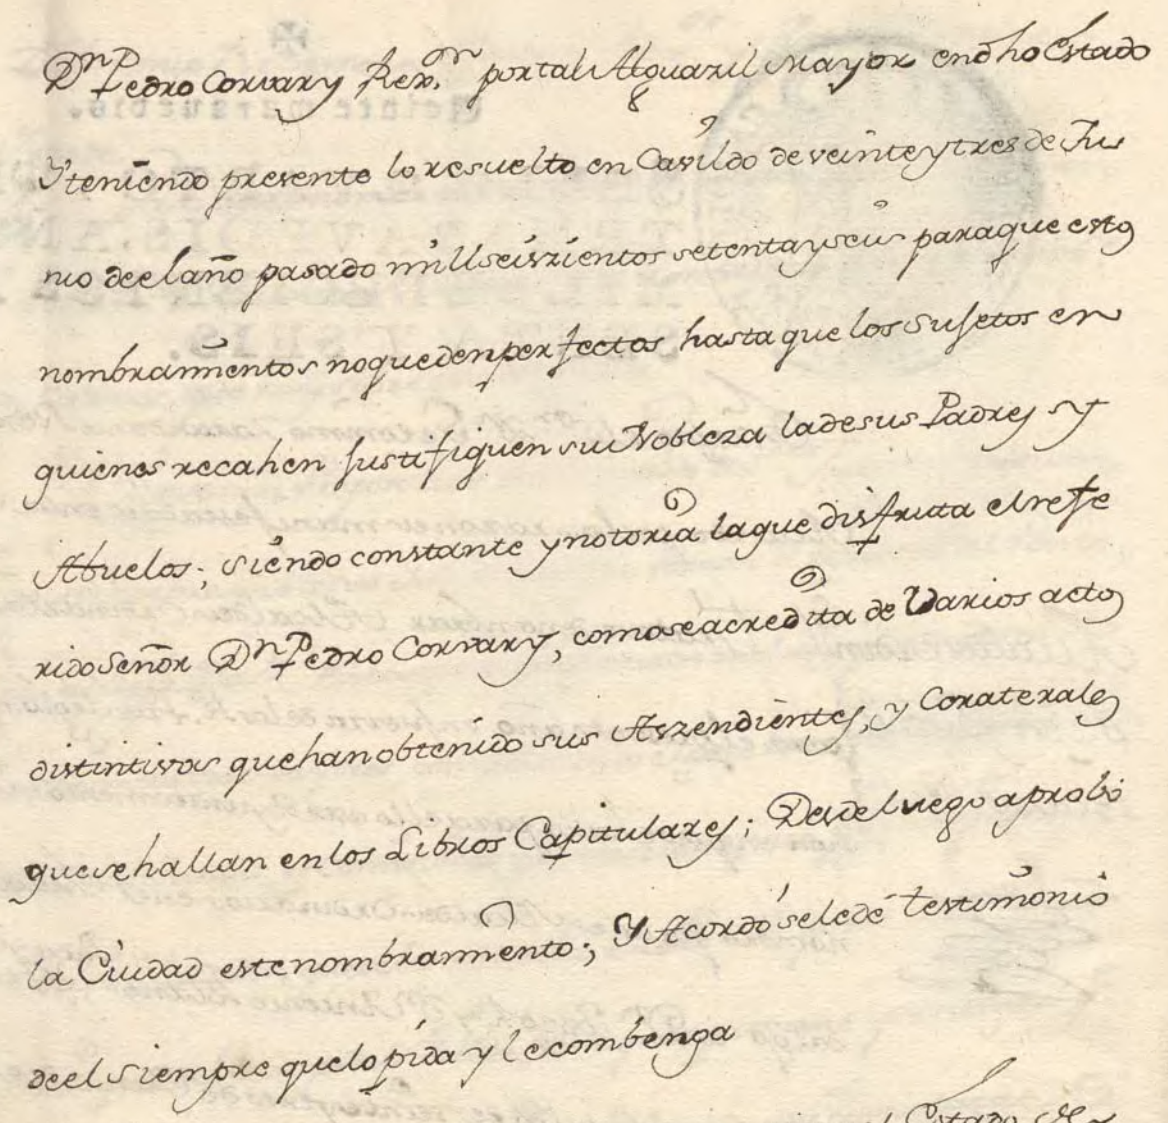 Dn Pedro Corvary Rexon por tal Alguazil Mayor en dho Estado
Y teniendo presente lo resuelto en Cavildo de veinte y tres de Ju
nio de el año pasado mill seiszientos setenta y seis para que estos
nombramientos no queden perfectos hasta que los Sujetos en
quienes recahen justifiquen su Nobleza la de sus Padres y
Abuelos; siendo constante y notoria la que disfruta el refe
rido Señor Dn Pedro Corvary, como se acredita de Varios actos
distintivos que han obtenido sus Aszendientes, y Coraterales
que se hallan en los Libros Capitulares; Desde luego aprobó
la Ciudad este nombramiento; Y Acordó se le dé testimonio
de el siempre que lo pida y le combenga
Estado